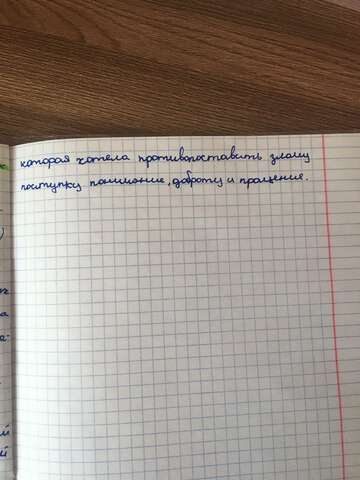 которая хотела противопоставить злому
поступку понимание, доброту и прощение.